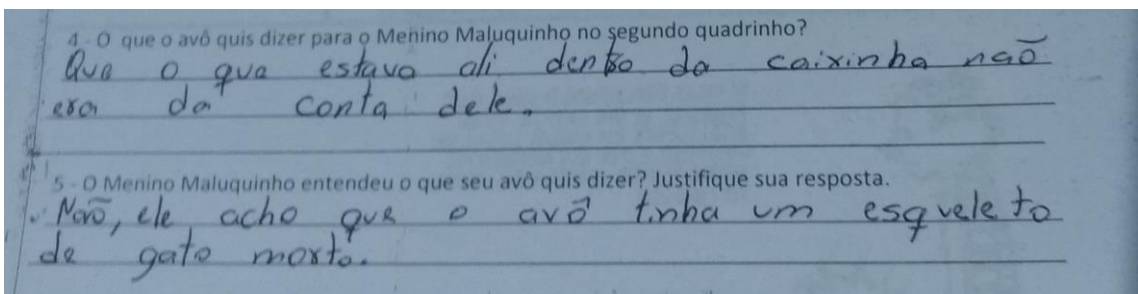 4 - O que o avô quis dizer para o Menino Maluquinho no segundo quadrinho?
Que o que estava ali dentro da caixinha não
era da conta dele.
5 - O Menino Maluquinho entendeu o que seu avô quis dizer? Justifique sua resposta.
Não, ele acho que o avô tinha um esqueleto
de gato morto.